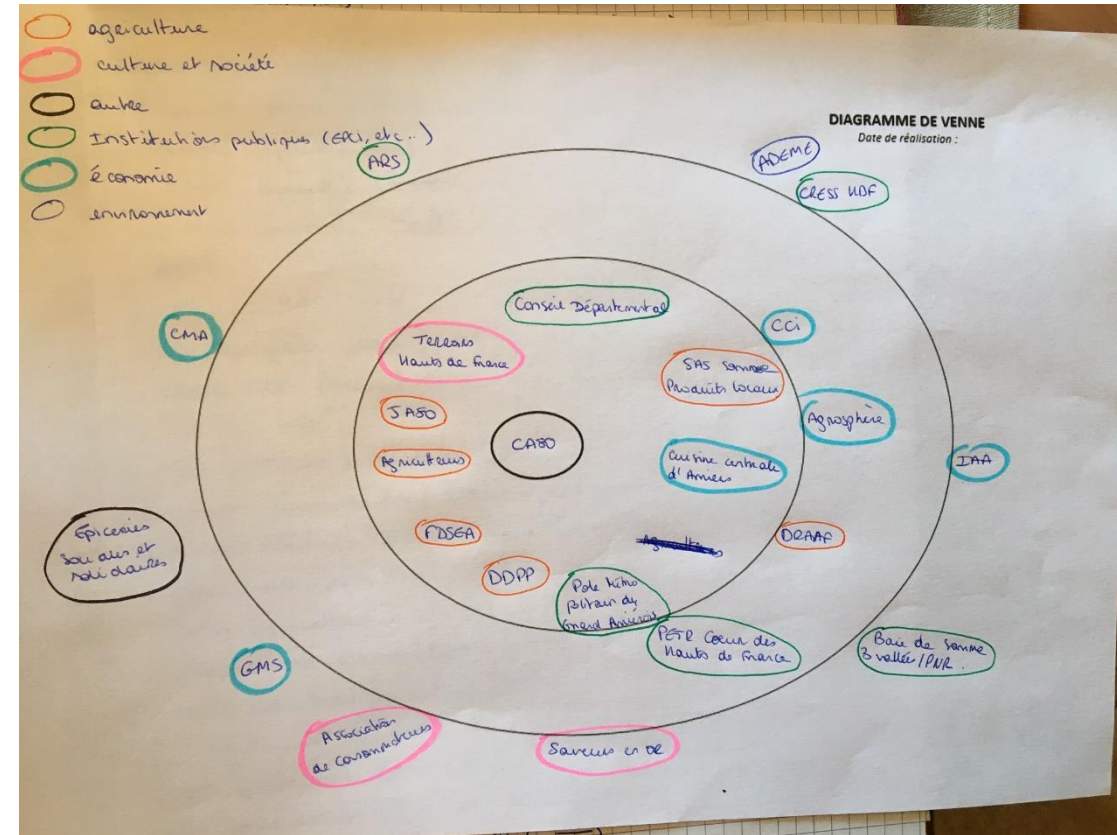 agriculture
culture et société
autre
Institutions publiques (EPCi, etc..)
économie
environnement
DIAGRAMME DE VENNE
Date de réalisation :
ARS
ADEME
CRESS HDF
Conseil Départemental
CMA
CCi
Terroirs
Hauts de France
SAS Somme
Produits locaux
JA80
Agrosphère
CA80
Agriculteurs
Cuisine centrale
d'Amiens
IAA
FDSEA
DRAAF
Épiceries
sociales et
solidaires
DDPP
Pole Métro
politain du
Grand Amiénois
PETR Coeur des
Hauts de France
Baie de Somme
3 vallées/PNR.
GMS
Association
de consommateurs
Saveurs en OR